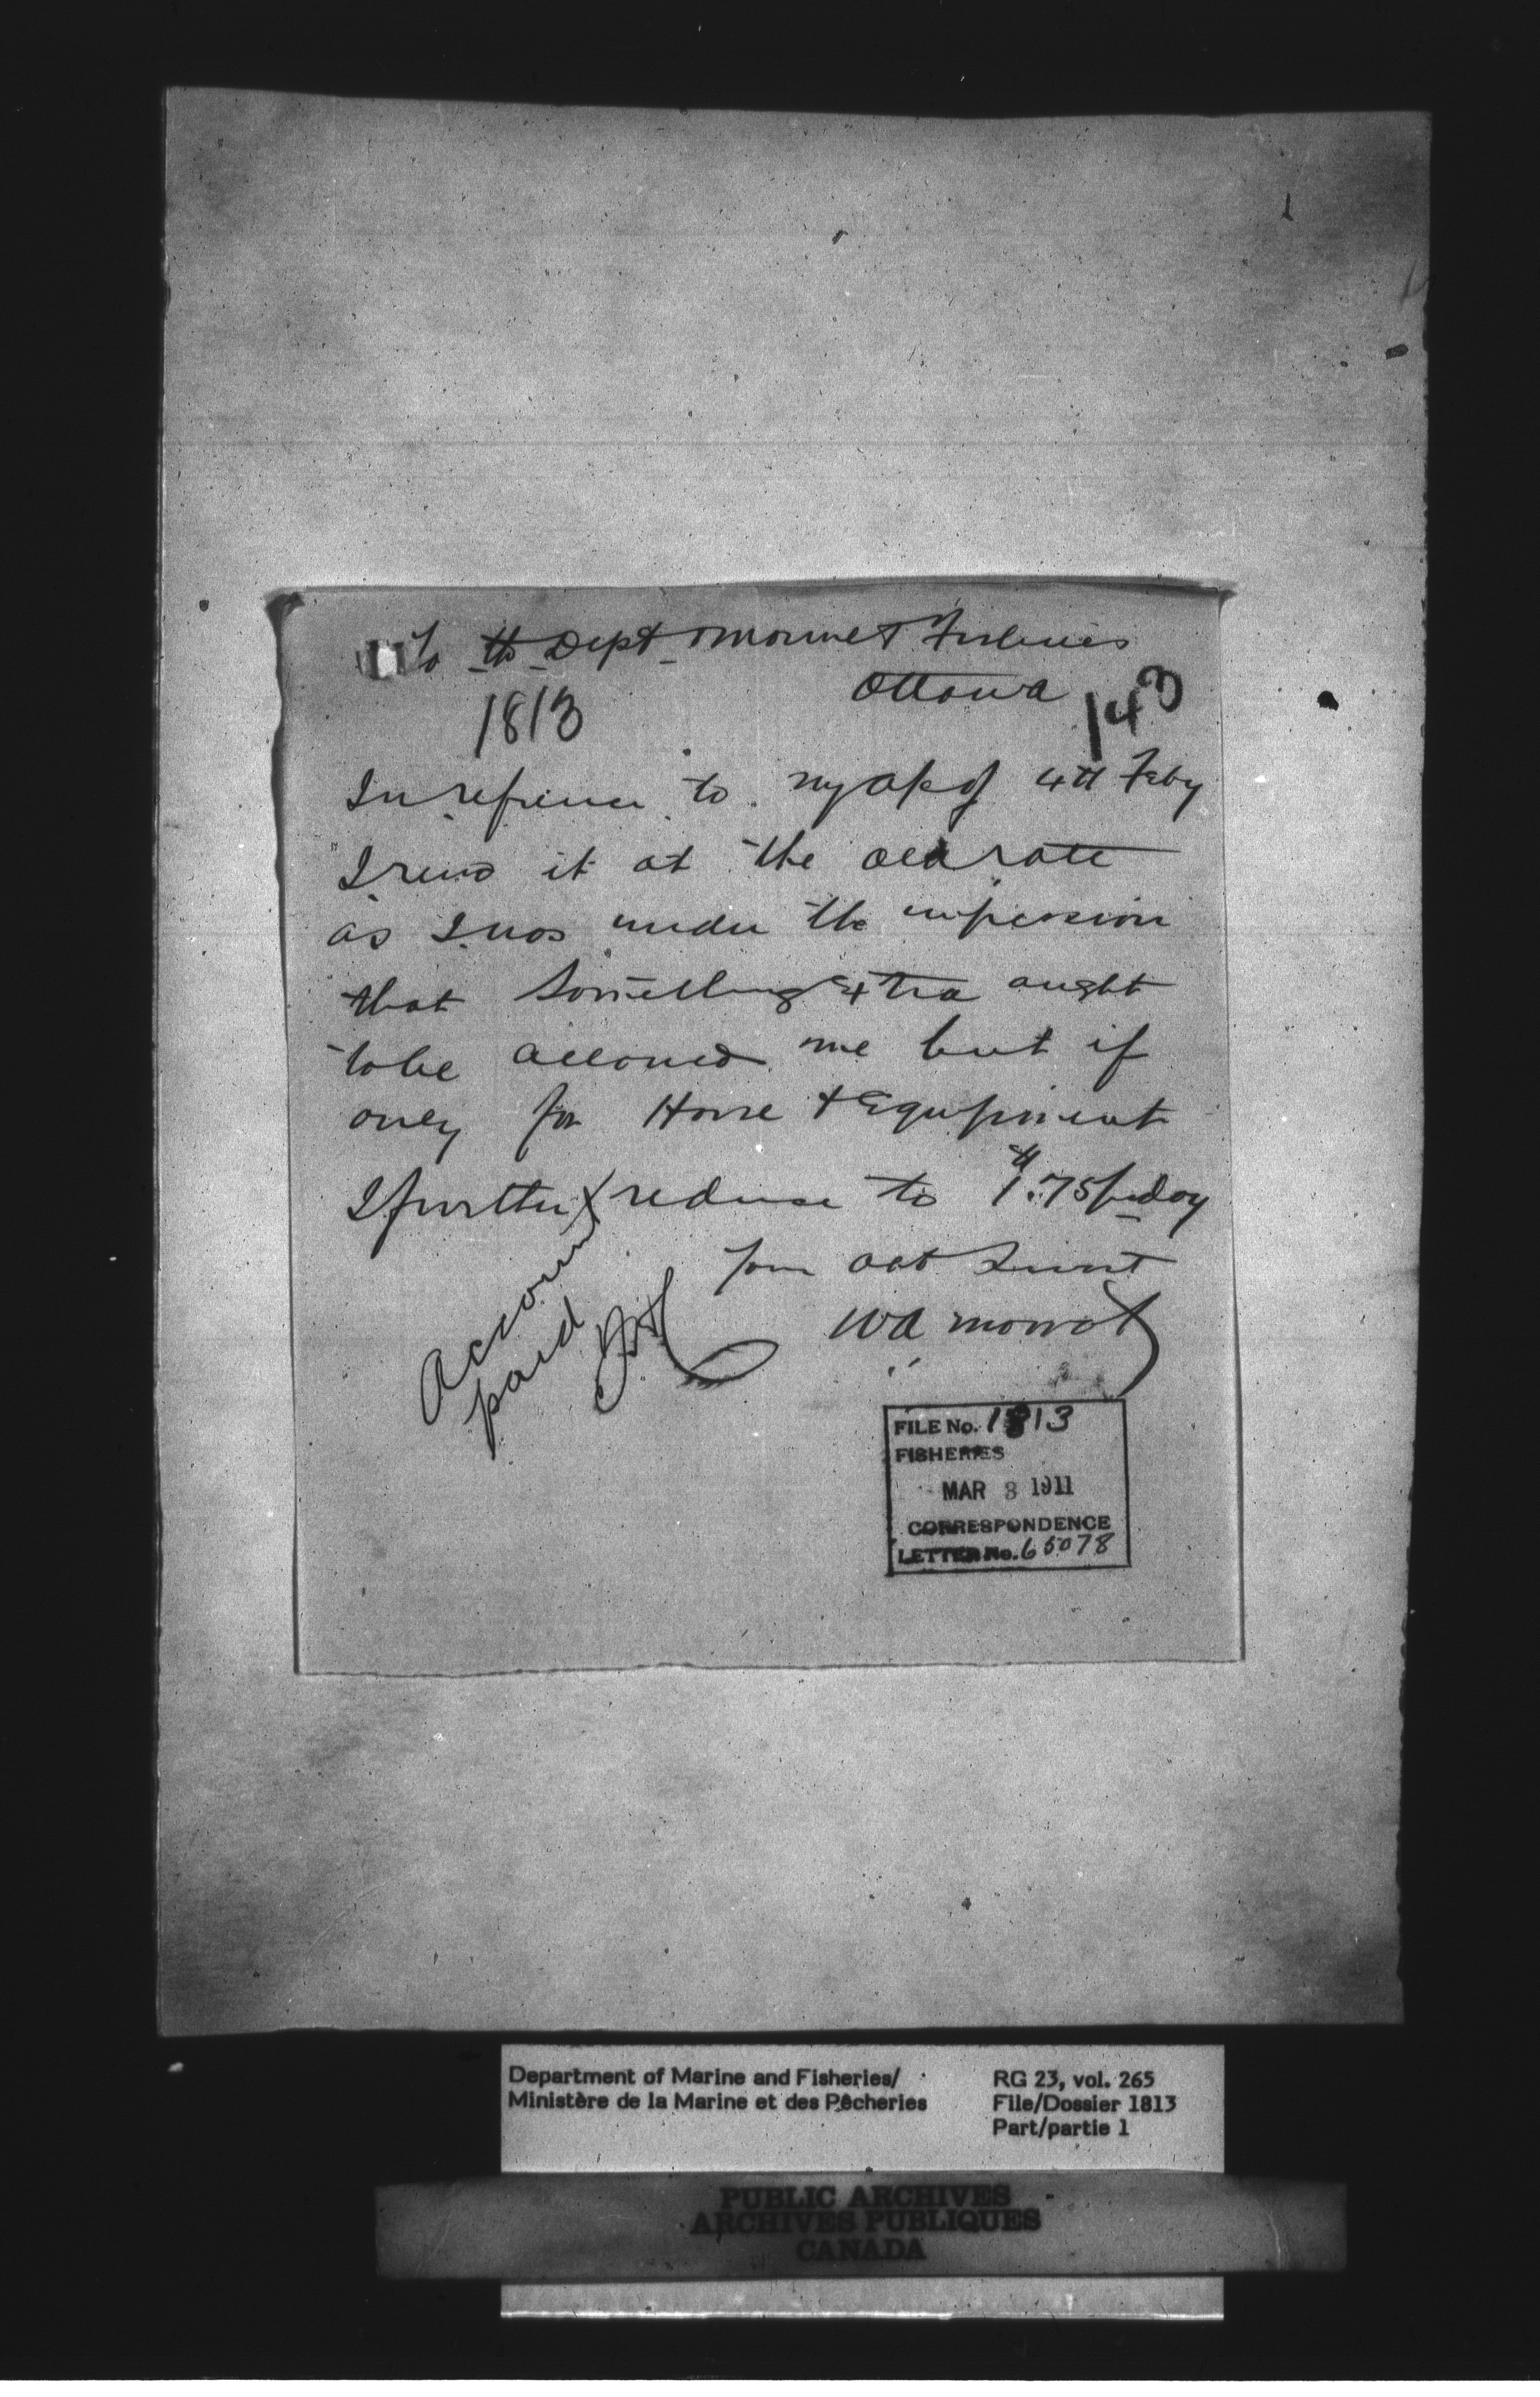 To the Dept Marine & Fisheries
Ottawa
1813
143
In reference to my a/c of 4th Feby
I send it at the old rate
as I was under the impression
that something extra ought
to be allowed me but if
only for Horse & Equipment
I further reduce to $1.75 per day
Your obt Servt
WA
Account
paid
FILE No. 1813
FISHERIES
MAR 8 1911
CORRESPONDENCE
LETTER No. 65078
Department of Marine and Fisheries/
Ministère de la Marine et des Pêcheries
RG 23, vol. 265
File/Dossier 1813
Part/partie 1
PUBLIC ARCHIVES
ARCHIVES PUBLIQUES
CANADA